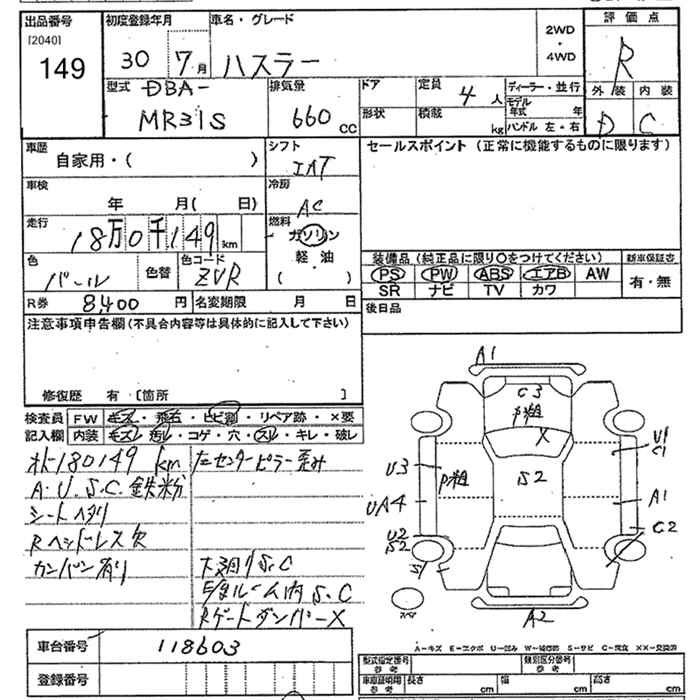 出品番号
[2040]
149
初度登録年月
30 7月
車名・グレード
ハスラー
2WD
・
4WD
評価点
R
外装 内装
D C
型式
DBA-
MR31S
排気量
660 cc
ドア
形状
定員
4人
積載
kg
ディーラー・並行
モデル年式 年
ハンドル 左・右
車歴
自家用・( )
シフト
IAT
車検
年 月( 日)
冷房
AC
走行
18万0千149 km
燃料
ガソリン
軽油
( )
色
パール
色替
色コード
ZVR
R券 8,400 円
名変期限 月 日
セールスポイント (正常に機能するものに限ります)
装備品 (純正品に限り○をつけてください)
PS PW ABS エアB AW
SR ナビ TV カワ
新車保証書
有・無
後日品
注意事項申告欄(不具合内容等は具体的に記入して下さい)
修復歴 有 [箇所 ]
検査員記入欄
FW キズ・飛石・ヒビ割・リペア跡・×要
内装 キズ・汚レ・コゲ・穴・スレ・キレ・破レ
メーター180149 km
左センターピラー歪み
A.U.S.C.鉄粉
シートヘタリ
Rヘッドレス欠
カンバン有り
下廻りS.C
Eルーム内S.C
RゲートダンパーX
A1
C3
P粗
X
U3
P粗
S2
UA4
U2
S2
S1
U1
C1
A1
C2
スペア
A2
A-キズ E-エクボ U-凹み W-補修跡 S-サビ C-腐食 XX-交換済
車台番号 118603
登録番号
型式指定番号
参考
類別区分番号
参考
車庫証明用
参考
長さ cm 幅 cm 高さ cm